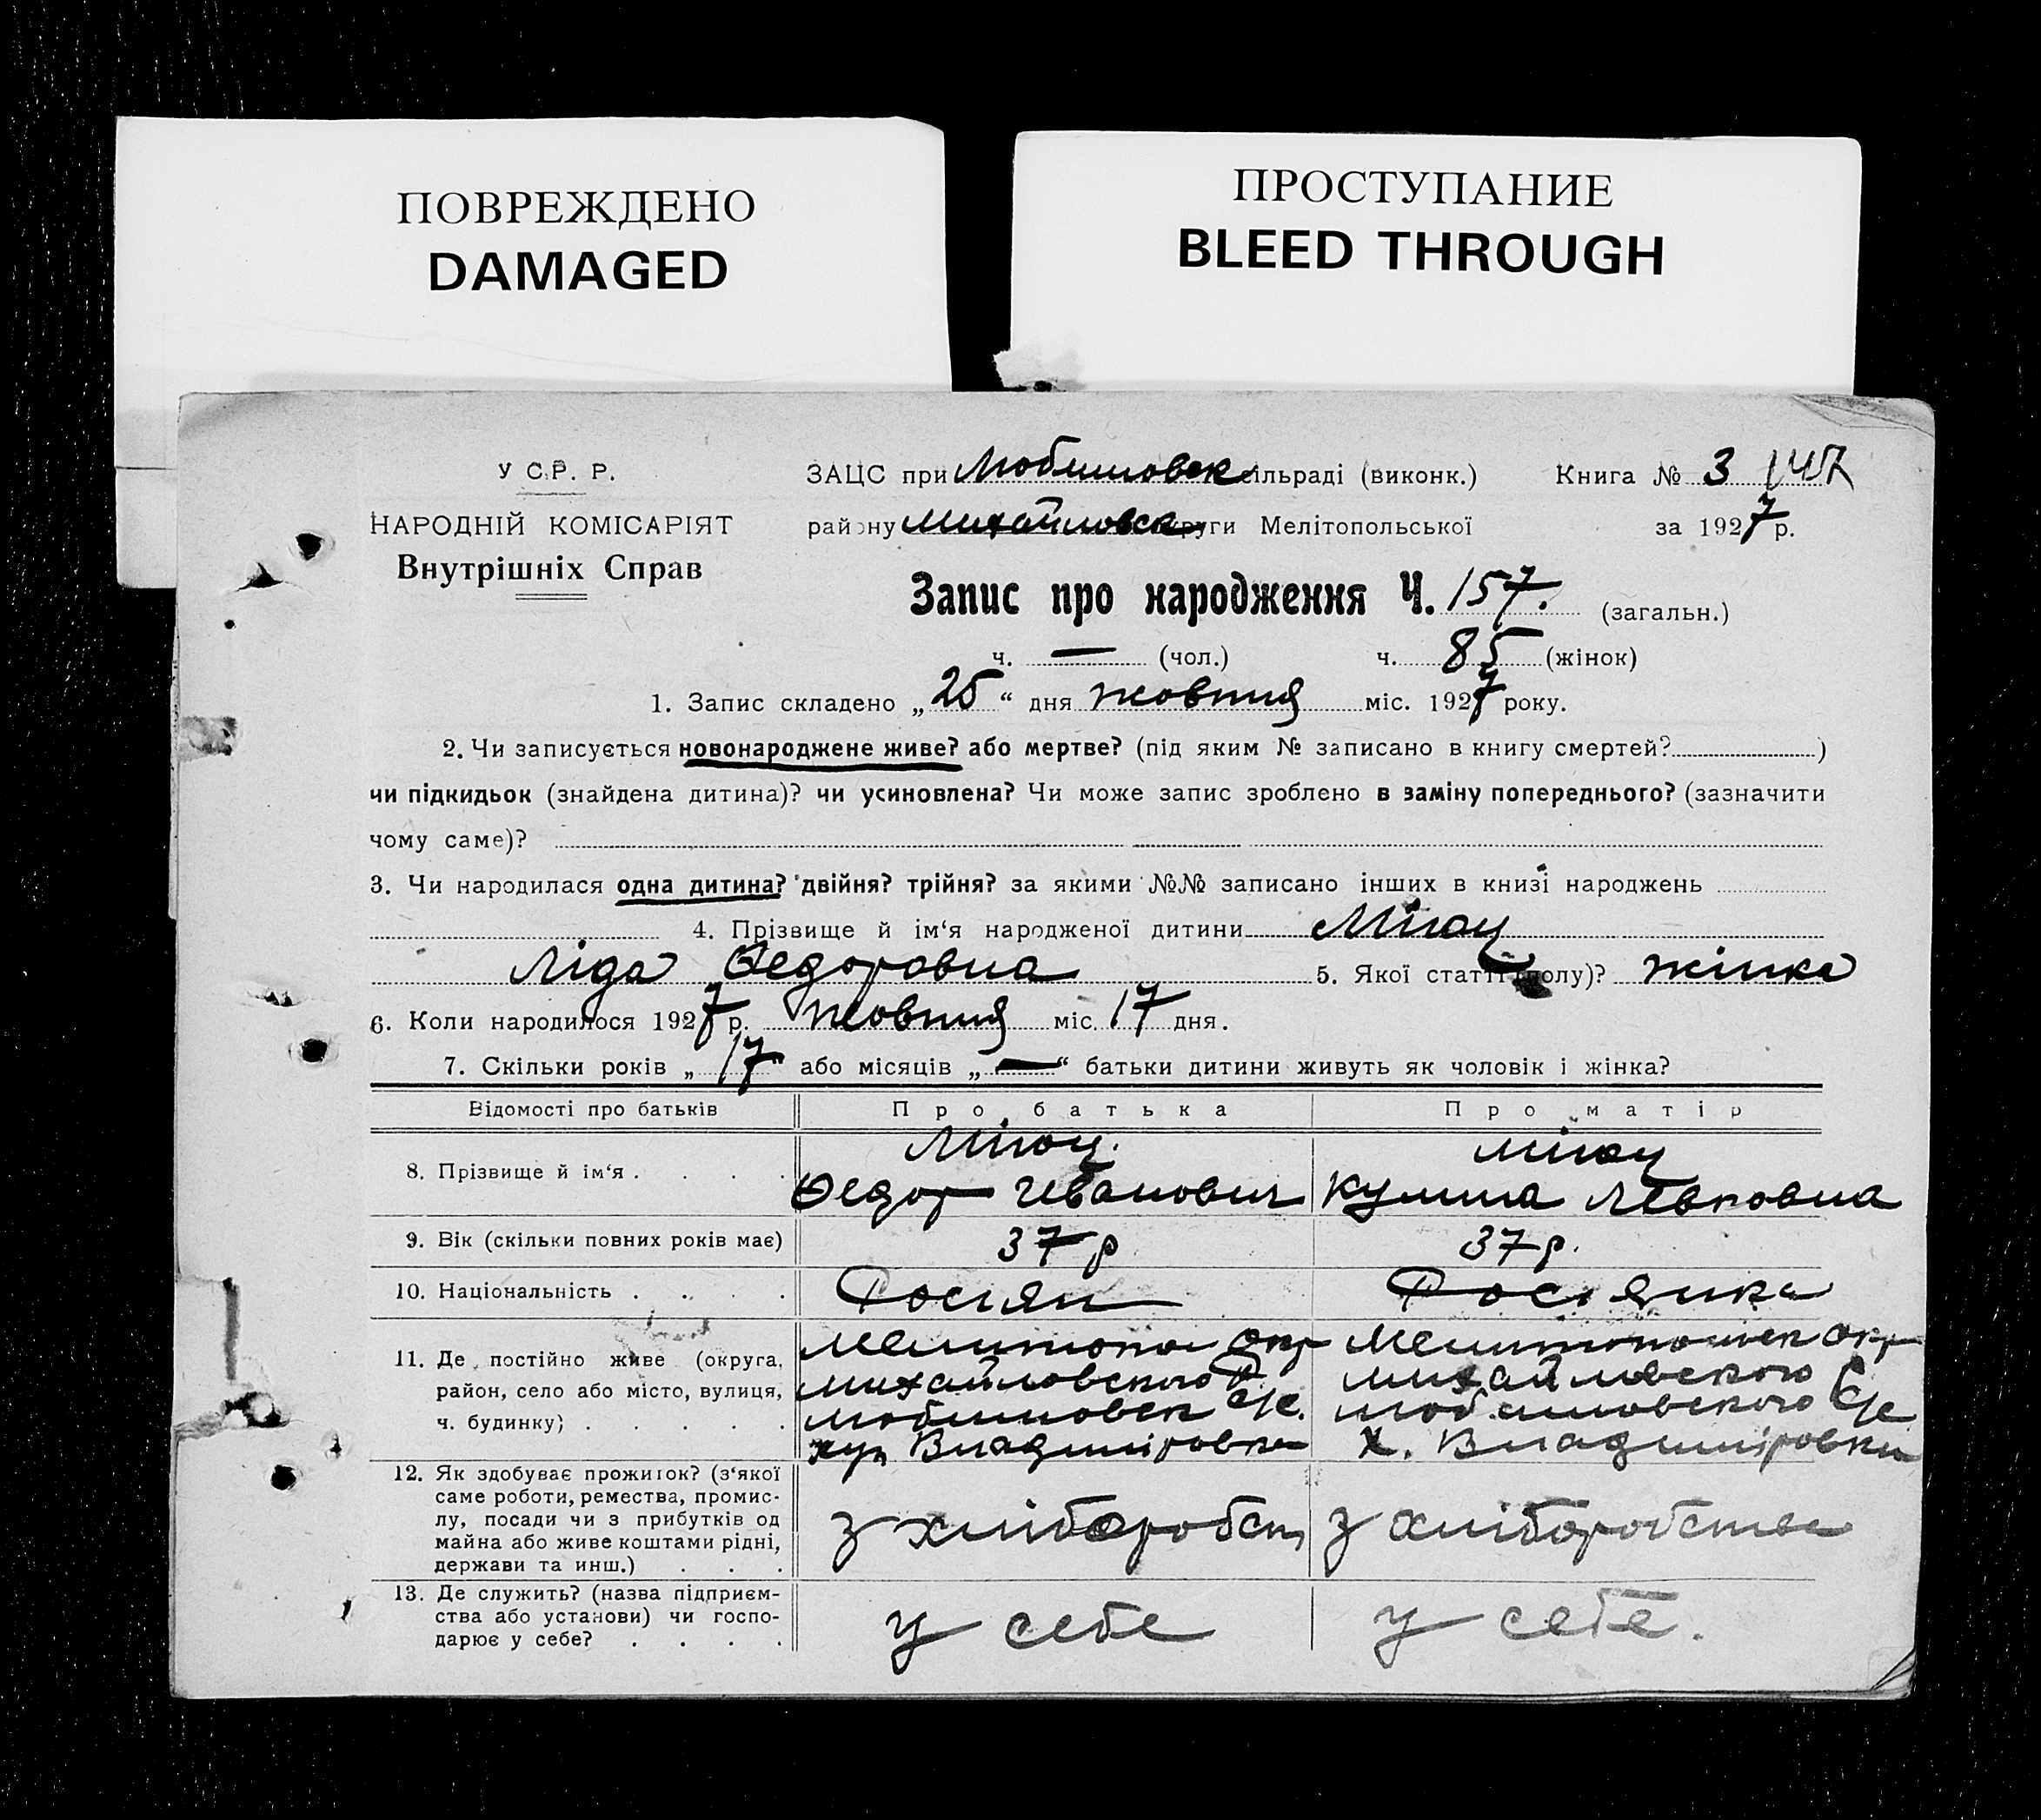 ПОВРЕЖДЕНО
DAMAGED
ПРОСТУПАНИЕ
BLEED THROUGH
У С.Р. Р.
НАРОДНІЙ КОМІСАРІЯТ
Внутрішніх Справ
ЗАЦС при Любимовск сільраді (виконк.) Книга № 3
району Михайловск округи Мелітопольської за 1927 р.
Запис про народження Ч. 157. (загальн.)
ч. — (чол.) ч. 85 (жінок)
1. Запис складено „25“ дня жовтня міс. 1927 року.
2. Чи записується новонароджене живе? або мертве? (під яким № записано в книгу смертей? )
чи підкидьок (знайдена дитина)? чи усиновлена? Чи може запис зроблено в заміну попереднього? (зазначити
чому саме)?
3. Чи народилася одна дитина? двійня? трійня? за якими №№ записано інших в книзі народжень
4. Прізвище й ім‘я народженої дитини
Ліда Федоровна 5. Якої статті (полу)? жінка
6. Коли народилося 1927 р. жовтня міс. 17 дня.
7. Скільки років „17“ або місяців „—“ батьки дитини живуть як чоловік і жінка?
Відомості про батьків Про батька Про матір
8. Прізвище й ім‘я . . . .
Федор Іванович Левковна
9. Вік (скільки повних років має) 37 р 37 р.
10. Національність . . . . Росіян Росіянка
11. Де постійно живе (округа, район, село або місто, вулиця, ч. будинку) . . . . .
Мелитопол окр Мелитопольск окр
Михайловского Р Михайловского Р
Любимовск с/с. Любимовского с/с
хут Владиміровка х. Владиміровки
12. Як здобуває прожиток? (з‘якої
саме роботи, ремества, промис-
лу, посади чи з прибутків од
майна або живе коштами рідні,
держави та инш.) . . .
з хліборобст з хліборобства
13. Де служить? (назва підприєм-
ства або установи) чи госпо-
дарює у себе? . . . .
у себе у себе.